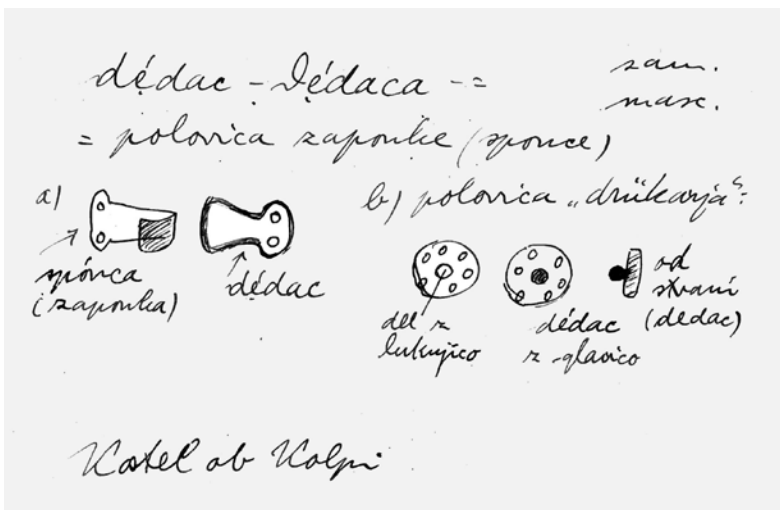 dẹ́dac - dẹ́daca -=
sam.
masc.
= polovica zaponke (sponce)
a)
spónca
(zaponka)
dẹ́dac
b) polovica „drükarja“:
del z
luknjico
dẹ́dac
z glavico
od
strani
(dedac)
Kostel ob Kolpi